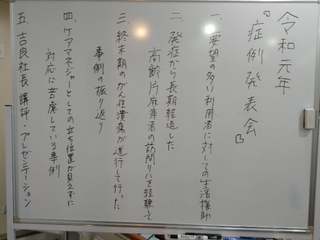 令和元年
『症例発表会』
一、要望の多い利用者に対しての生活援助
二、発症から長期経過した
高齢片麻痺者の訪問リハを経験して
三、終末期のがん性疼痛が進行して行った
事例の振り返り
四、ケアマネジャーとしての立ち位置が見えずに
対応に苦慮している事例
五、吉良社長 講評・プレゼンテーション